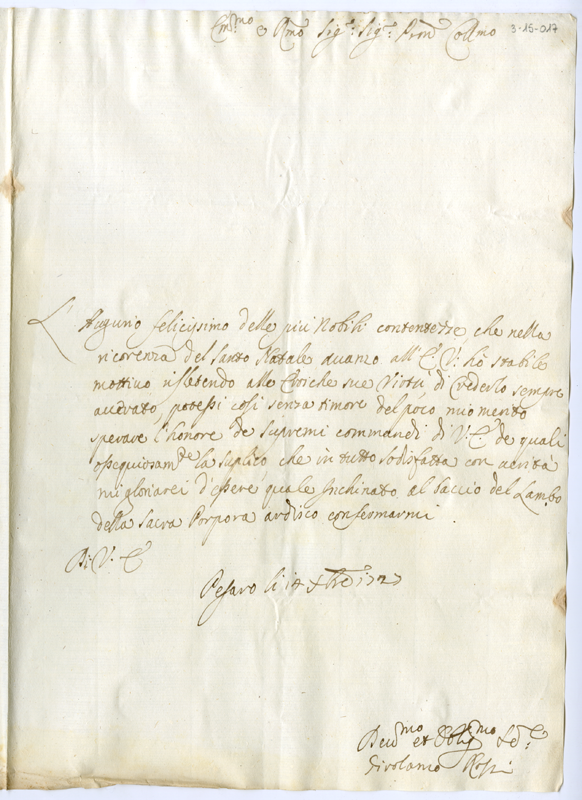 Em.mo e Rmo Sig.r Sig.r Pron Collmo
3-15-017
L'Augurio felicissimo delle piu Nobili contentezze, che nella
ricorenza del Santo Natale auanzo all' E. V: hò stabile
mottiuo rifletendo alle Eroiche sue Virtù di Vederlo sempre
auuerato, potessi cosi senza timore del poco mio merito
sperare l'honore de supremi commandi di V. E. de quali
ossequiosam.te la suplico, che in tutto sodisfatta con uerità
mi gloriarei d'essere quale Inchinato al baccio del Lembo
della Sacra Porpora ardisco confermarmi
Di V. E.
Pesaro li 14 Xbre 1727
Deu.mo et Oblig.mo Se.
Girolamo Rossi